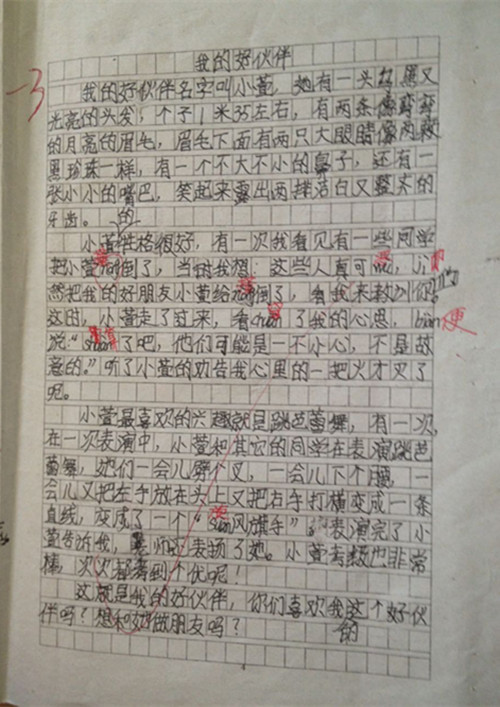 我的好伙伴
我的好伙伴名字叫小萱，她有一头红黑又
光亮的头发，个子1米35左右，有两条像弯弯
的月亮的眉毛，眉毛下面有两只大眼睛像两颗
黑珍珠一样，有一个不大不小的鼻子，还有一
张小小的嘴巴，笑起来露出两排洁白又整齐的
牙齿。
小萱的性格很好，有一次我看见有一些同学
把小萱倒了，当时我想：这些人真可恶，
然把我的好朋友小萱给倒了，看我来教训你们
这时，小萱走了过来，看穿chuan了我的心思，bian便
说“suan算了吧，他们可能是一不小心，不是故
意的。”听了小萱的劝告我心里的一把火才灭了
呢。
小萱最喜欢的兴趣就是跳芭蕾舞，有一次，
在一次表演中，小萱和其它的同学在表演跳芭
蕾舞，她们一会儿劈个叉，一会儿下个腰，一
会儿又把左手放在头上又把右手打横变成一条
直线，变成了一个“风旗手”。表演完了小
萱告诉我，老师还表扬了她。小萱考级也非常
棒，次次都考到个优呢！
这就是我的好伙伴，你们喜欢我这个好伙
伴吗？想和她做朋友吗？